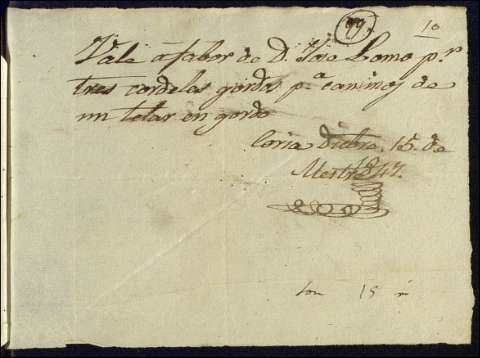 99. 10
Vale a fabor de D. Jose Lomo p.r
tres cordelas gordas p.a caminos de
un telar en gordo
Coria Dicbre. 15. de
1847.
son 15 r